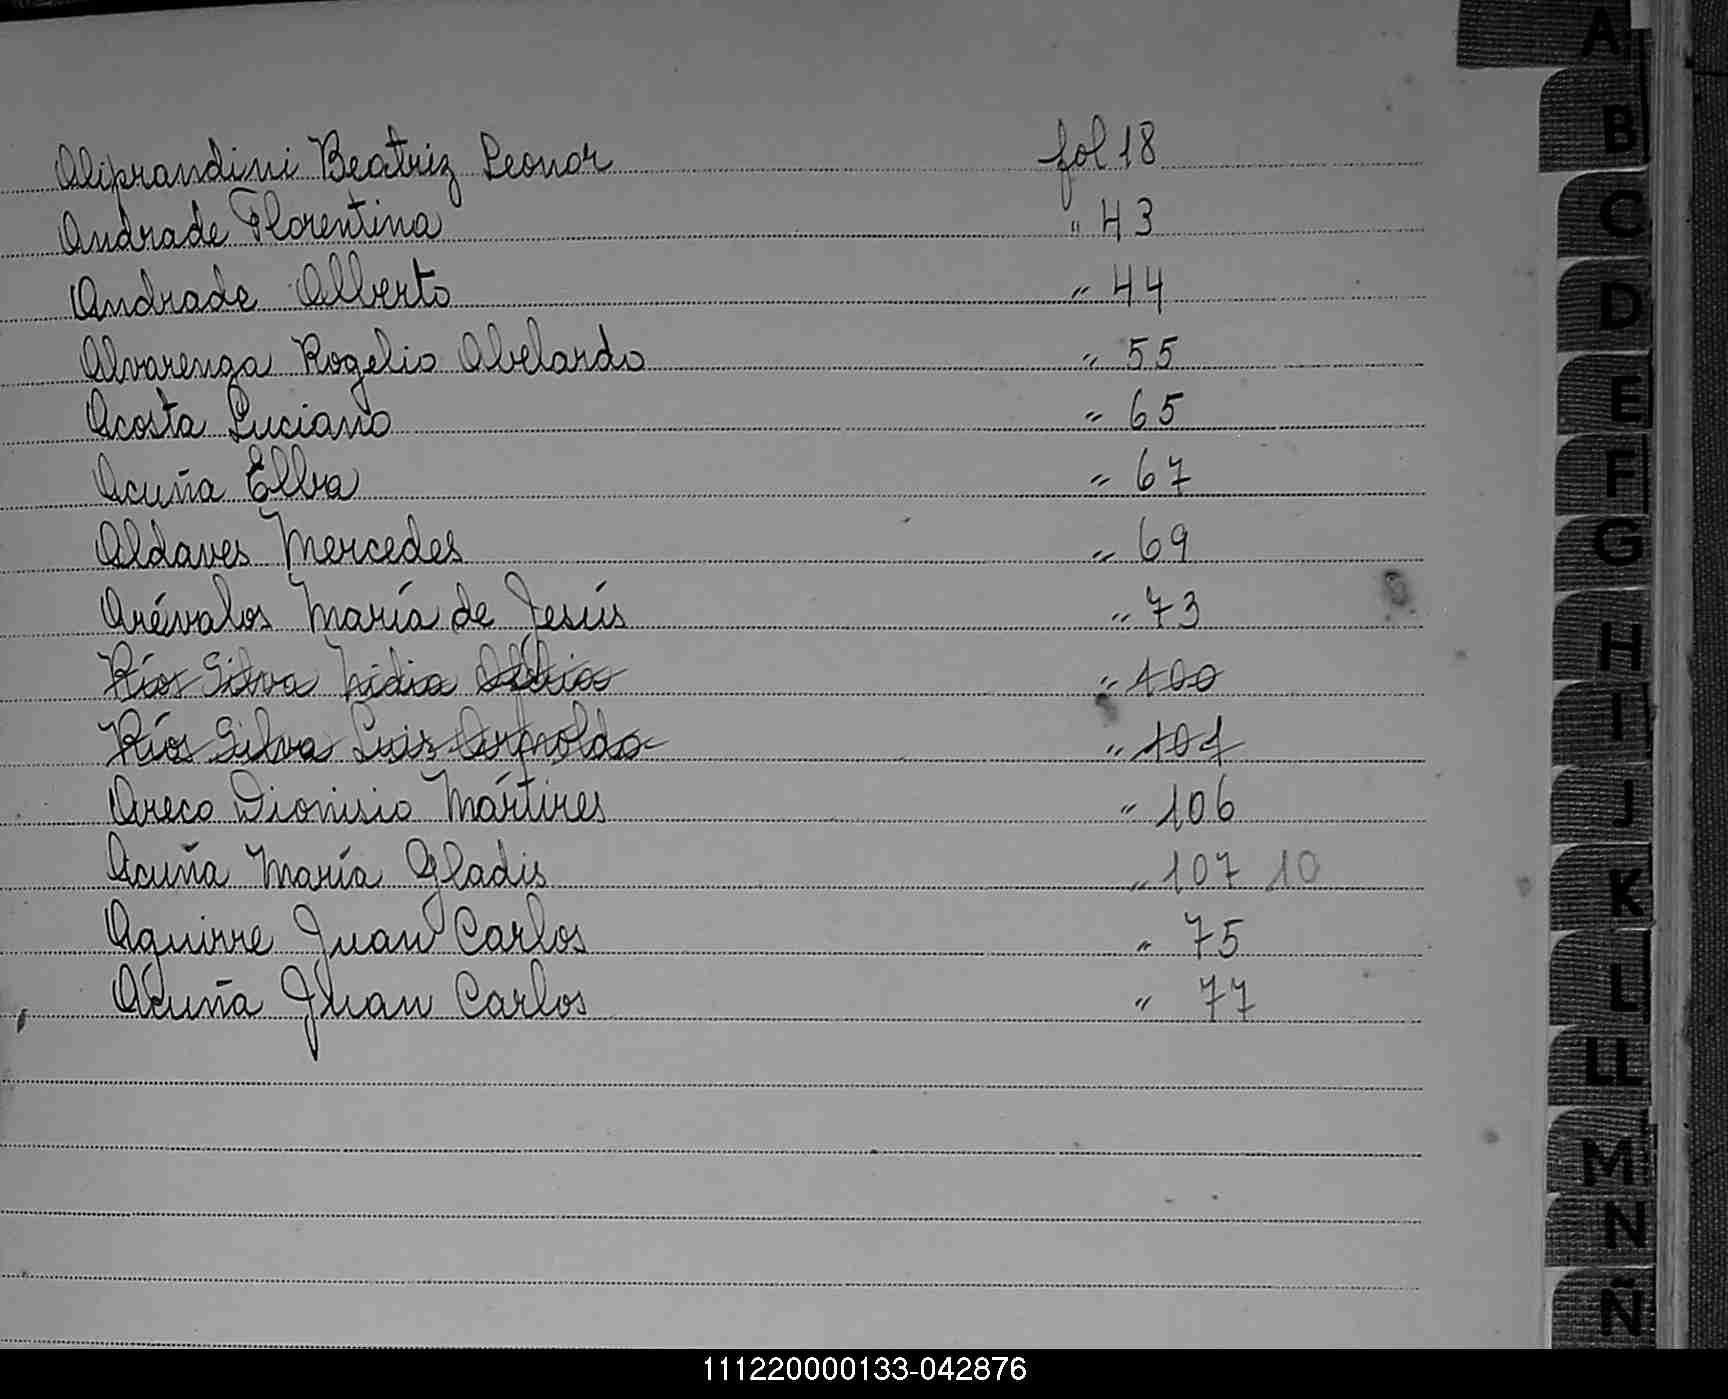 A
Aliprandini Beatriz Leonor fol 18
B
Andrade Florentina " 43
C
Andrade Alberto " 44
D
Alvarenga Rogelio Abelardo " 55
Acosta Luciano " 65
E
Acuña Elba " 67
F
Aldaves Mercedes " 69
G
Arévalos María de Jesús " 73
H
Ríos Silva Lidia " 100
I
Ríos Silva Luis Arnoldo " 101
Areco Dionisio Mártires " 106
J
Acuña María Gladis " 107 10
K
Aguirre Juan Carlos " 75
Acuña Juan Carlos " 77
L
LL
M
N
Ñ
111220000133-042876